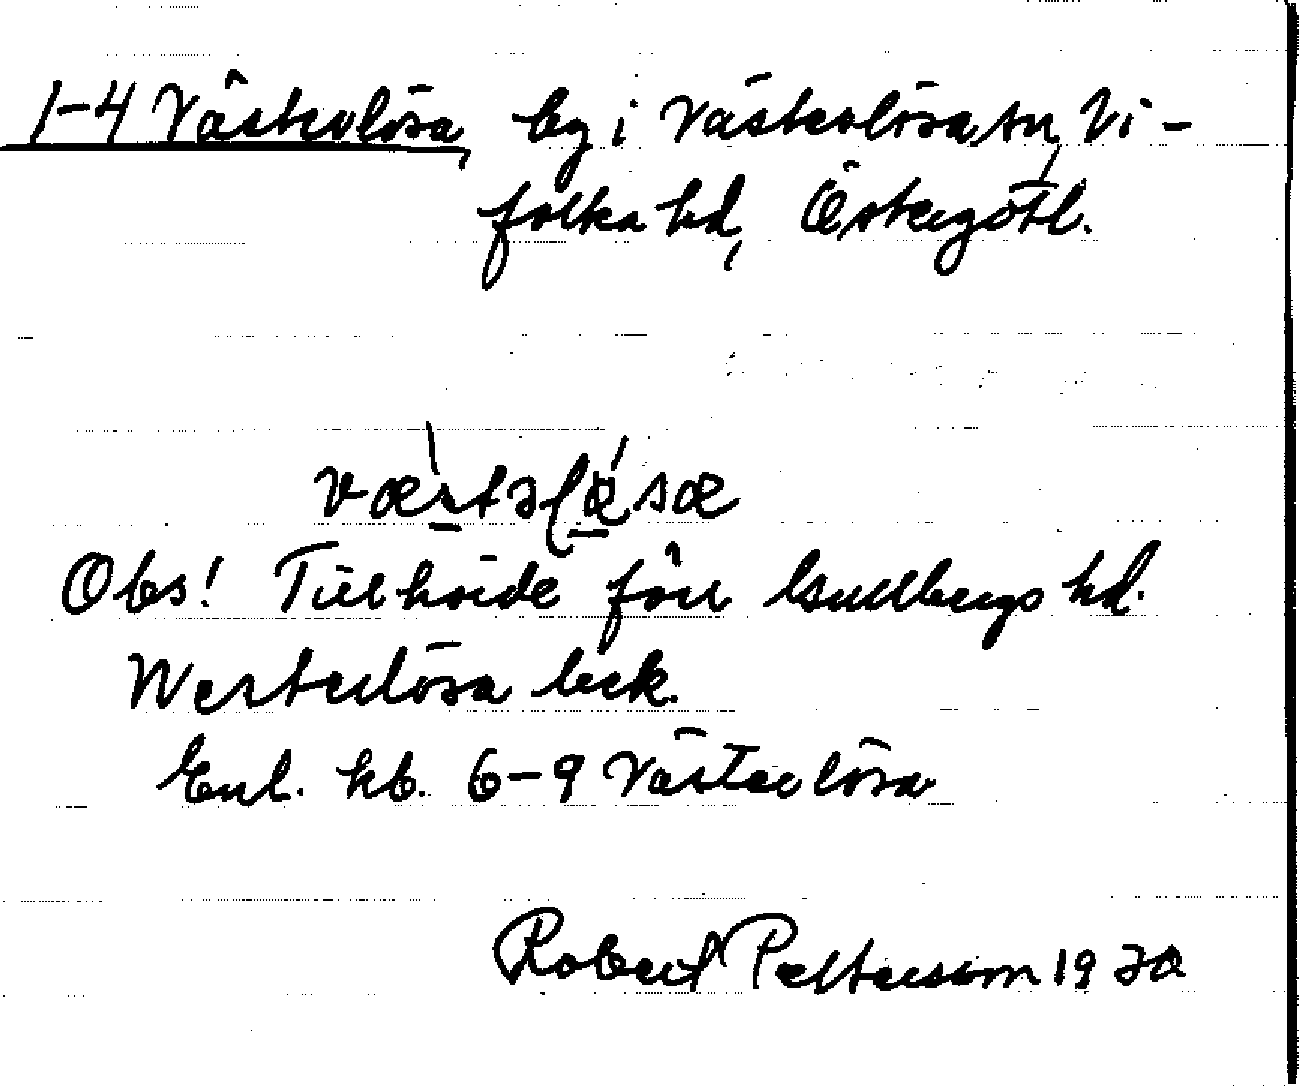 1-4 Västerlösa, by i Västerlösa sn, Vi-
folka hd, Östergötl.
væstəlǿsæ
Obs! Tillhörde förr Gullbergs hd.
Westerlösa beck.
Enl. kb. 6-9 Västerlösa
Robert Pettersson 1930